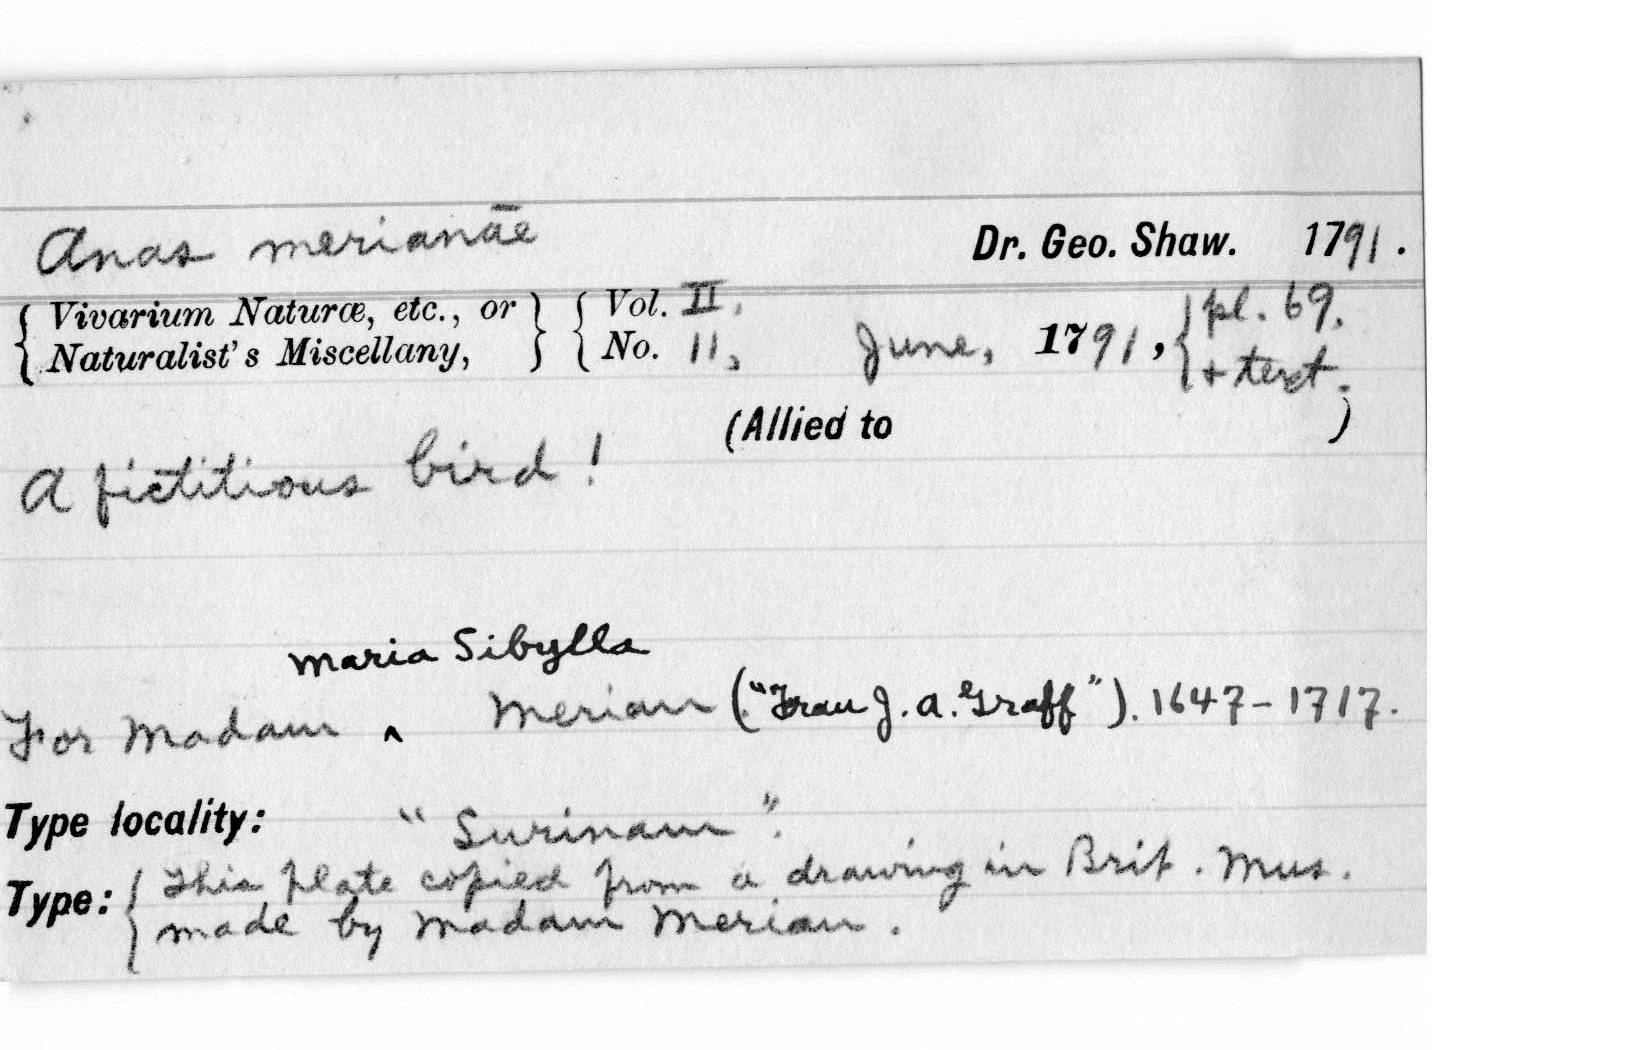 Anas merianāe Dr. Geo. Shaw. 1791.
{ Vivarium Naturæ, etc., or } { Vol. II, { pl. 69,
{ Naturalist's Miscellany, } { No. 11, June, 1791, { + text.
(Allied to )
A fictitious bird!
Maria Sibylla
For Madam ^ Merian ("Frau J. A. Graff"). 1647-1717.
Type locality: "Surinam".
Type: { This plate copied from a drawing in Brit. Mus.
{ made by Madam Merian.